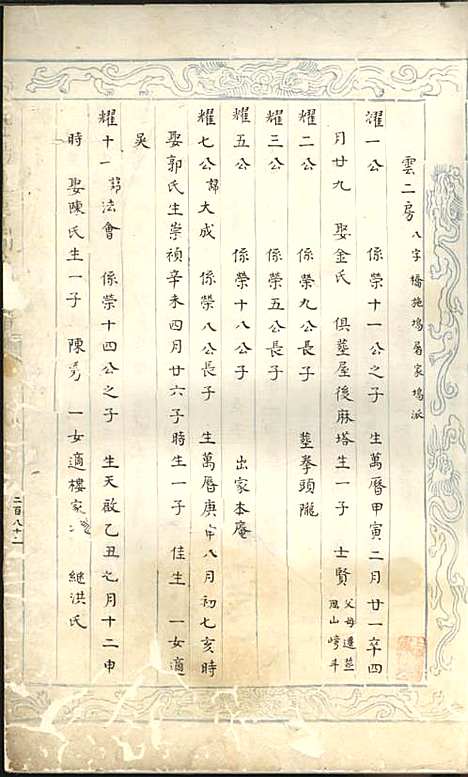 雲二房 八字橋施塢屠家塢派
耀一公 係榮十一公之子 生萬曆甲寅二月廿一卒四
月廿九 娶金氏 俱塟屋後麻塔生一子 士賢 父母遷塟
風山崎斗
耀二公 係榮九公長子 塟拳頭隴
耀三公 係榮五公長子
耀五公 係榮十八公子 出家本庵
耀七公 諱大成 係榮八公長子 生萬曆庚申八月初七亥時
娶郭氏生崇禎辛未四月廿六子時生一子 佳生 一女適
吳
耀十一 諱法會 係榮十四公之子 生天啟乙丑七月十二申
時 娶陳氏生一子 陳 一女適樓家 繼洪氏
二百八十